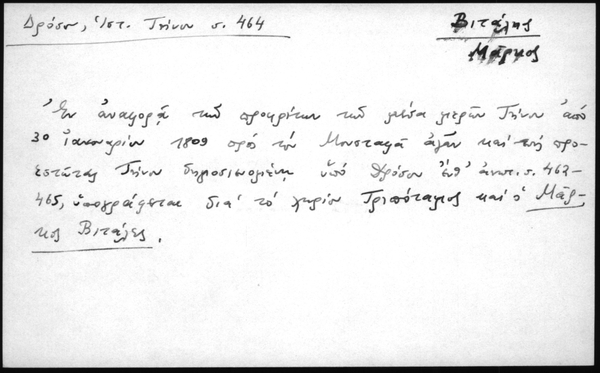 Δρόσου, Ἱστ. Τήνου σ. 464
Βιτάλης
Μάρκος
Ἐν ἀναφορᾷ τῶν προκρίτων τῶν μέσα μερῶν Τήνου ἀπό
30 Ἰανουαρίου 1809 πρός τόν Μουσταφᾶ ἀγᾶν καί τούς προ-
εστῶτας Τήνου δημοσιευομένῃ ὑπό Δρόσου ἔνθ' ἀνωτ. σ. 462-
465, ὑπογράφεται διά τό χωρίον Τριπόταμος καί ὁ Μάρ-
κος Βιτάλες.